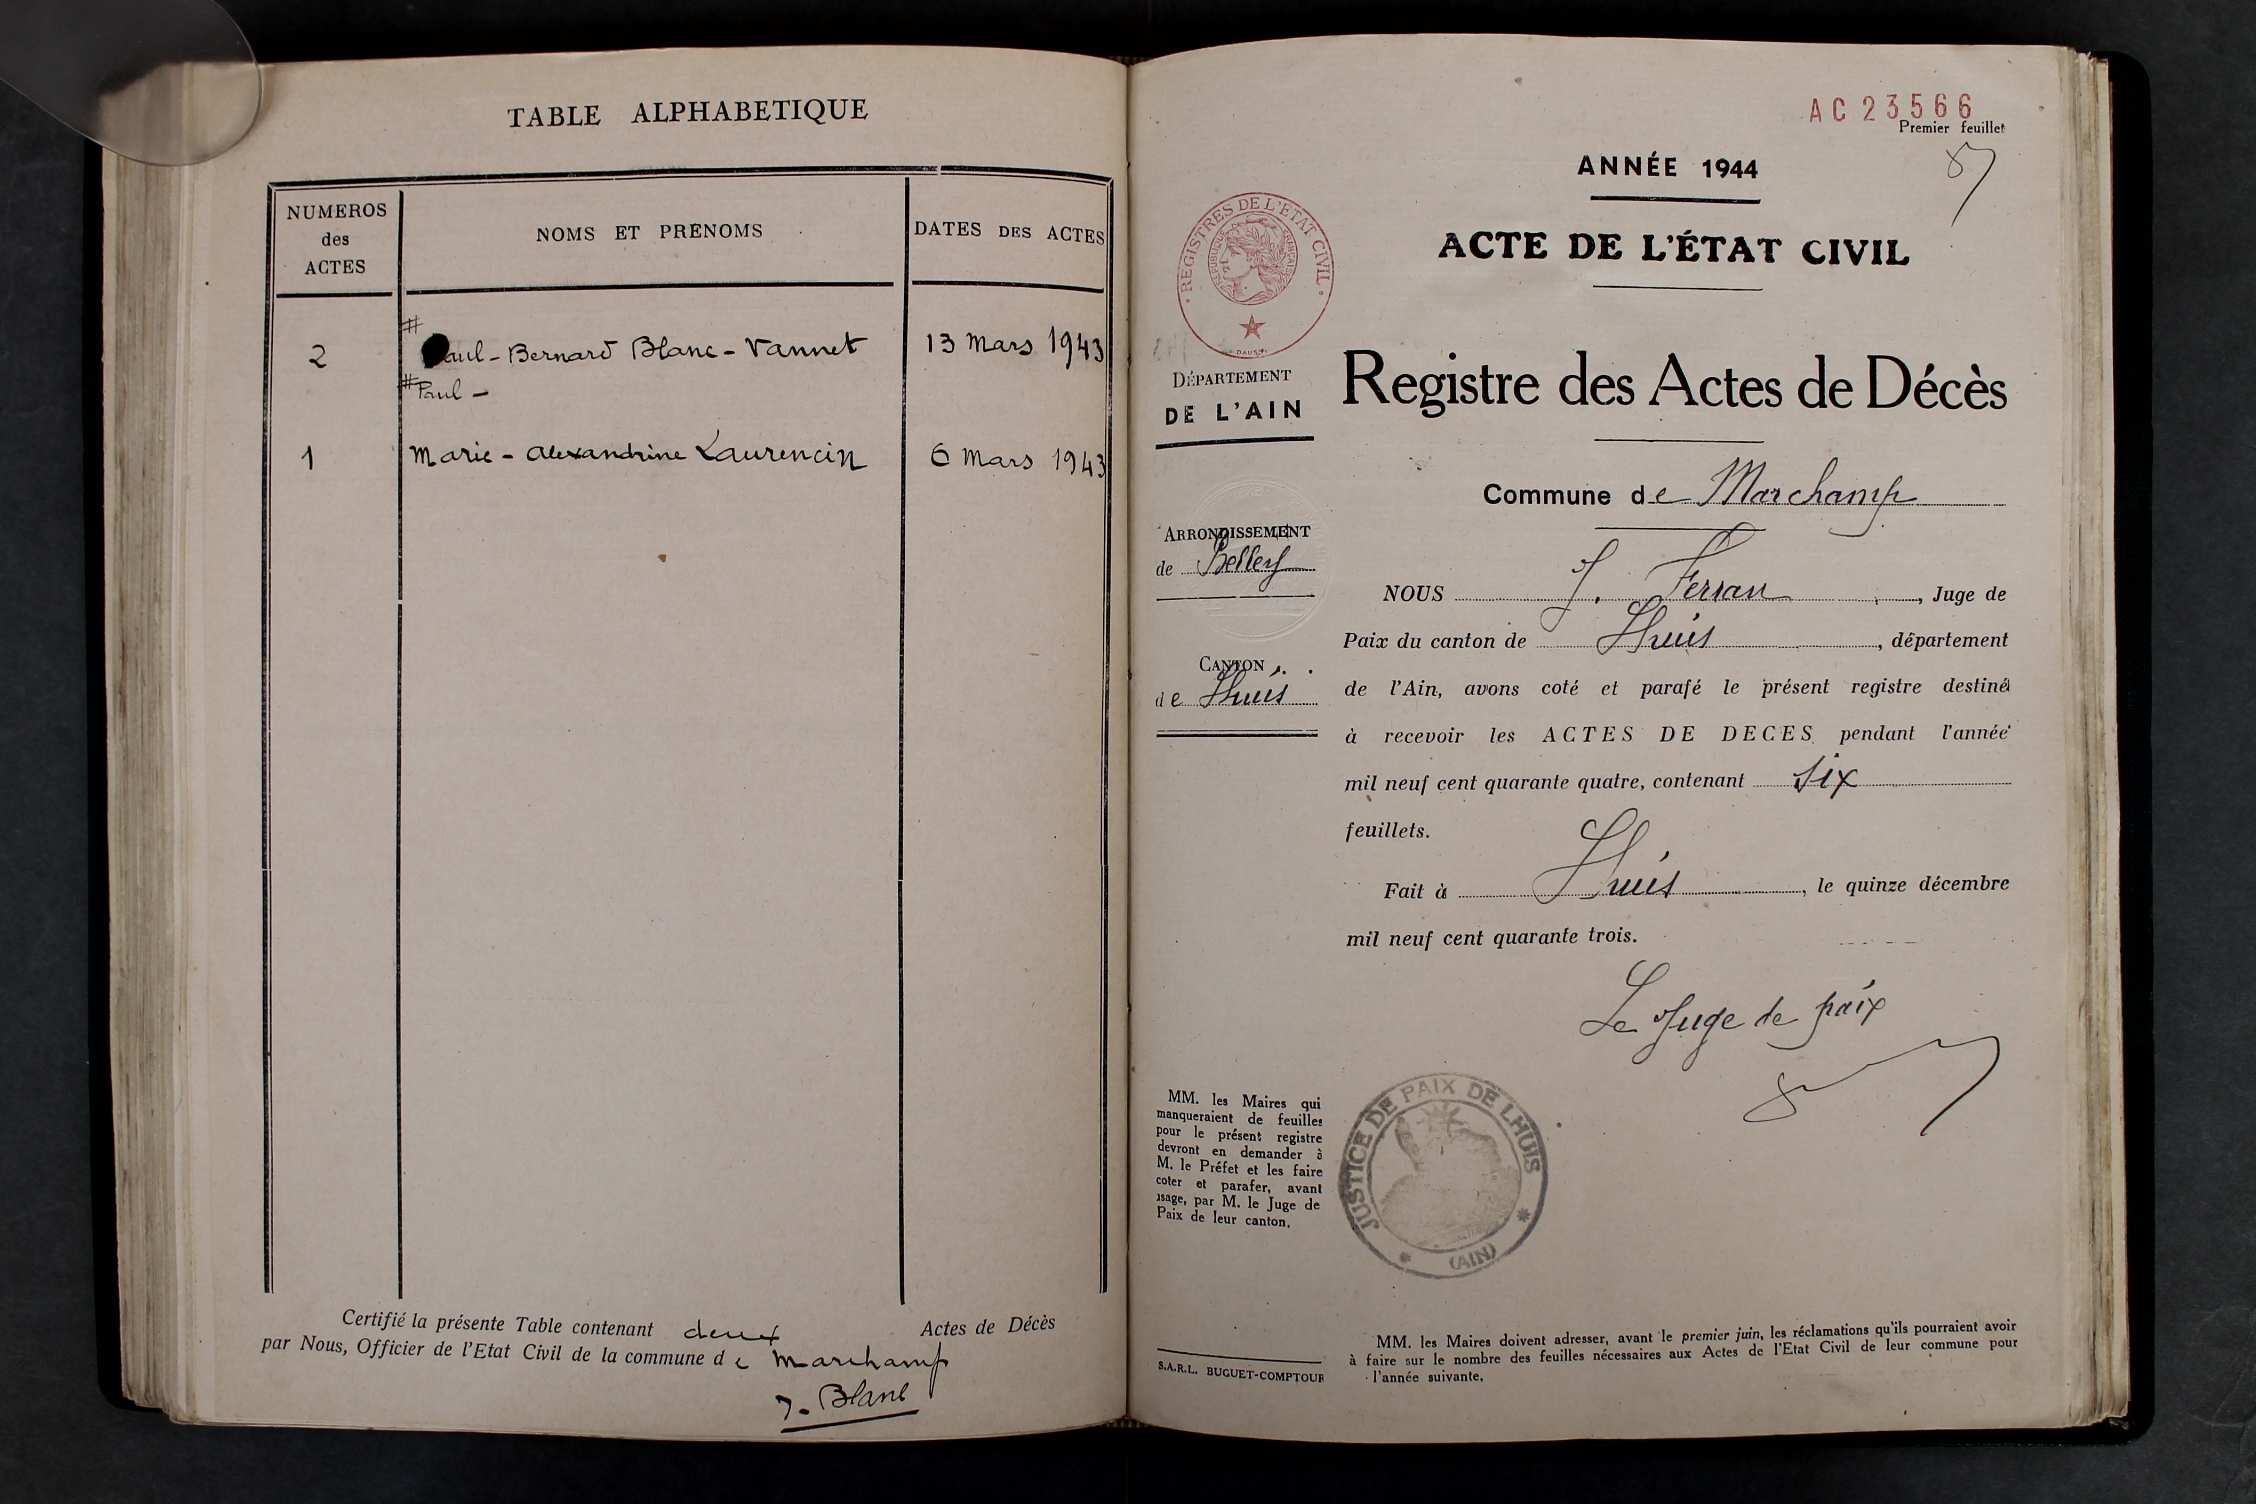 TABLE ALPHABETIQUE
NUMEROS
des
ACTES
NOMS ET PRÉNOMS
DATES DES ACTES
#
2 Paul - Bernard Blanc - Vannet 13 Mars 1943
# Paul -
1 Marie - Alexandrine Laurencin 6 Mars 1943
Certifié la présente Table contenant deux Actes de Décès
par Nous, Officier de l'Etat Civil de la commune de Marchamp
J. Blanc
AC 23566
Premier feuillet
ANNÉE 1944
ACTE DE L'ÉTAT CIVIL
REGISTRES DE L'ETAT CIVIL
REPUBLIQUE FRANÇAISE
DÉPARTEMENT
DE L'AIN
Registre des Actes de Décès
Commune de Marchamp
ARRONDISSEMENT
de Belley
CANTON
de Lhuis
NOUS J. Ferran, Juge de
Paix du canton de Lhuis, département
de l'Ain, avons coté et parafé le présent registre destiné
à recevoir les ACTES DE DECES pendant l'année
mil neuf cent quarante quatre, contenant six
feuillets.
Fait à Lhuis, le quinze décembre
mil neuf cent quarante trois.
Le Juge de paix
JUSTICE DE PAIX DE LHUIS
(AIN)
MM. les Maires qui
manqueraient de feuilles
pour le présent registre
devront en demander à
M. le Préfet et les faire
coter et parafer, avant
usage, par M. le Juge de
Paix de leur canton.
S.A.R.L. BUGUET-COMPTOUR
MM. les Maires doivent adresser, avant le premier juin, les réclamations qu'ils pourraient avoir
à faire sur le nombre des feuilles nécessaires aux Actes de l'Etat Civil de leur commune pour
l'année suivante.